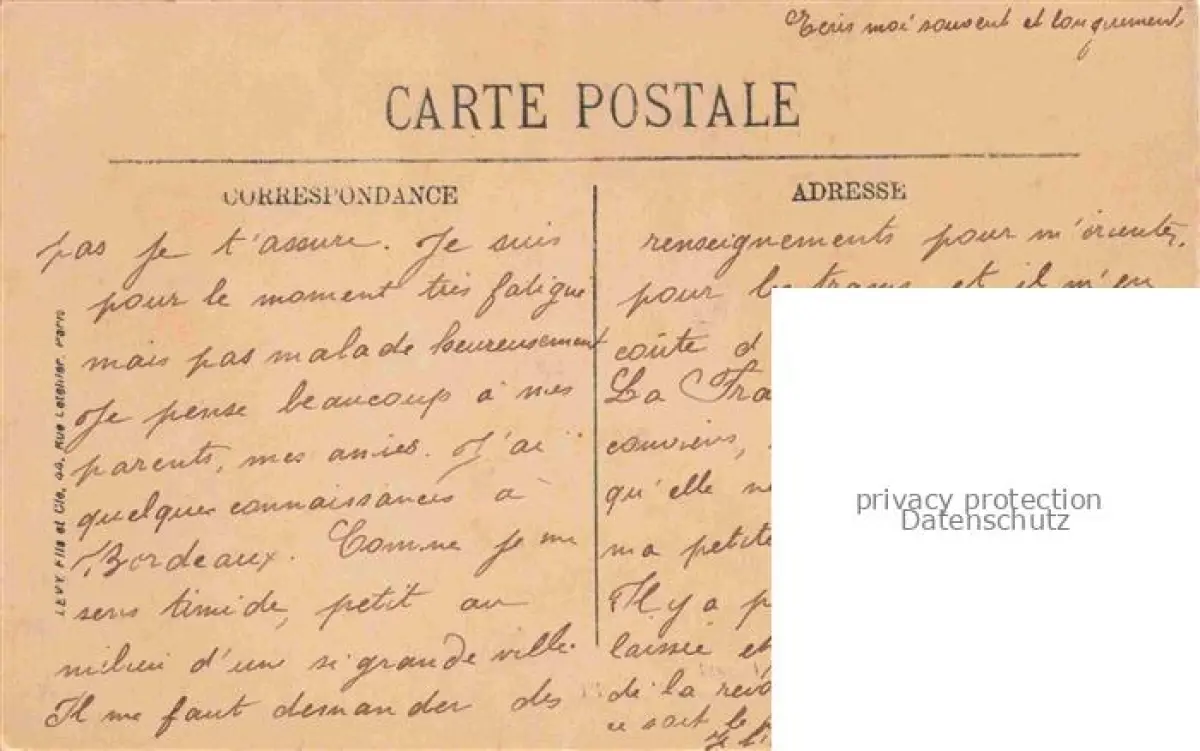 Ecris moi souvent et longuement
CARTE POSTALE
CORRESPONDANCE
pas je t'assure. Je suis
pour le moment très fatigué
mais pas malade heureusement
Je pense beaucoup à mes
parents, mes amies. J'ai
quelques connaissances à
Bordeaux. Comme je me
sens timide, petit au
milieu d'une si grande ville.
Il me faut demander des
ADRESSE
renseignements pour m'orienter,
pour les trams et il m'en
coûte d
La Fra
conviens,
qu'elle ne
ma petite
Il y a p
laissé et
de la rev
ce soit le p
LEVY Fils et Cie, 44, Rue Letellier, Paris
privacy protection
Datenschutz